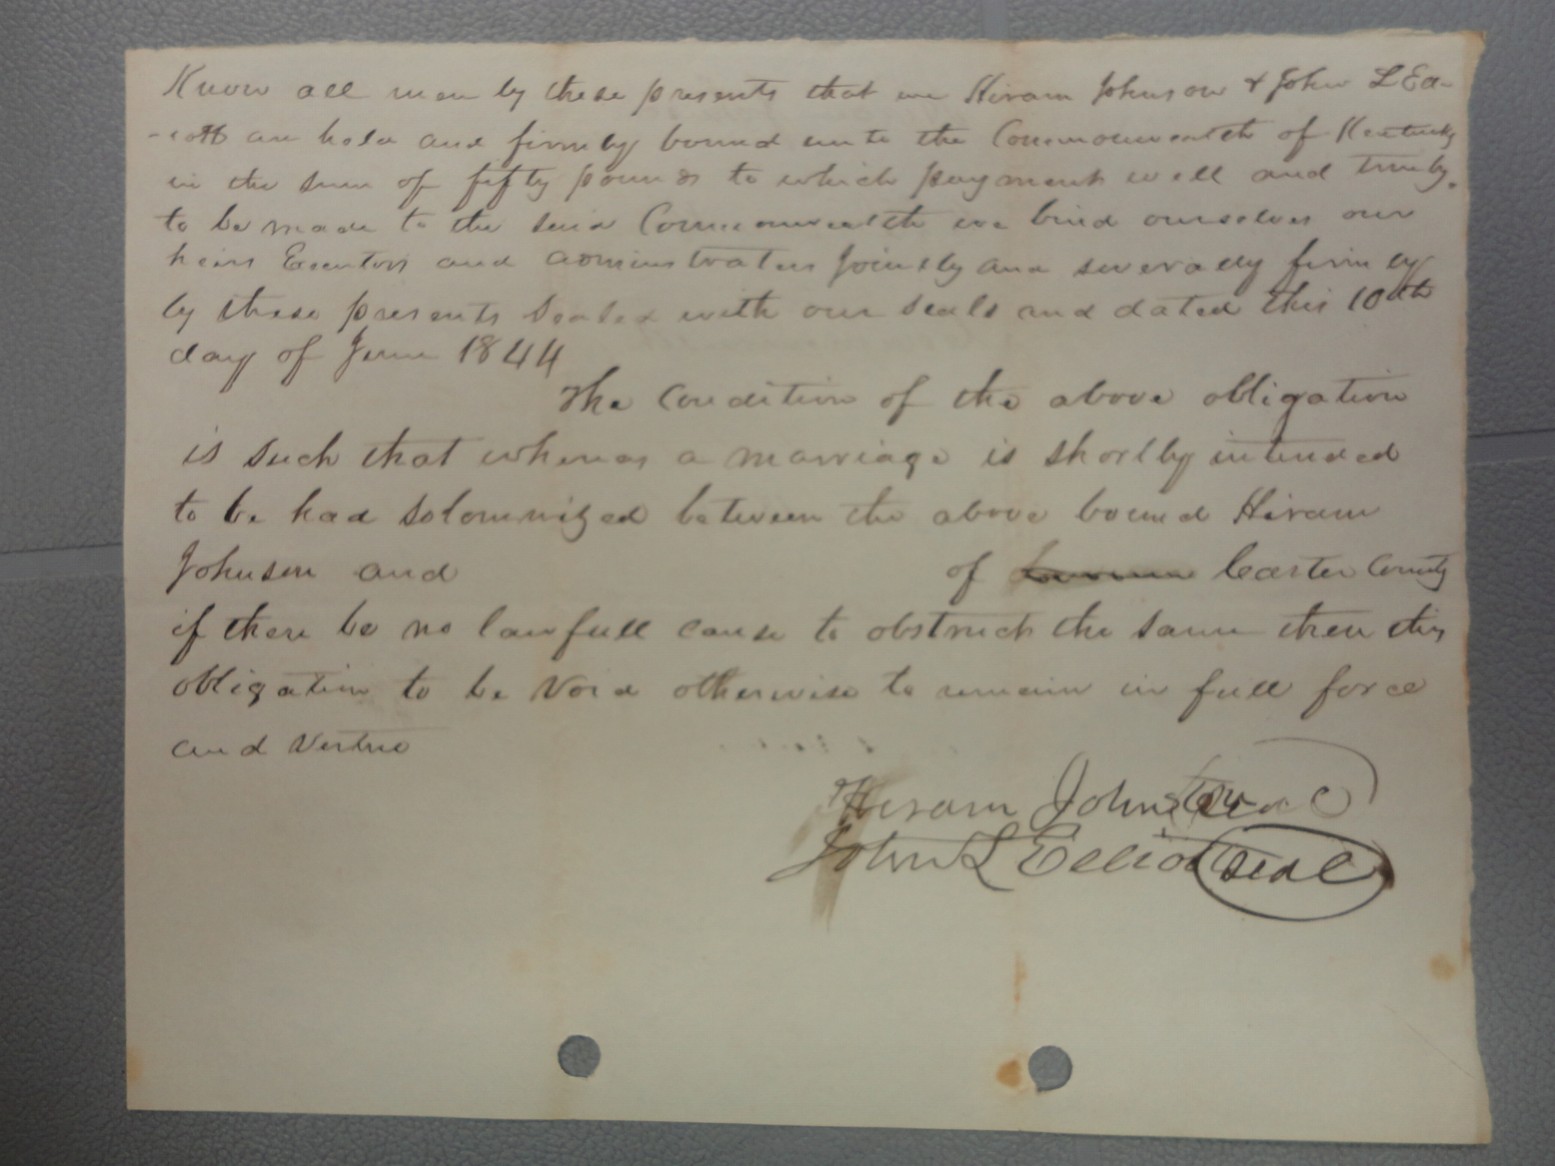 Know all men by these presents that we Hiram Johnson & John L Ell-
-iott are held and firmly bound unto the Commonwealth of Kentucky
in the sum of fifty pounds to which payment well and truly
to be made to the said Commonwealth we bind ourselves our
heirs Executors and administrators Jointly and severally firmly
by these presents Sealed with our seals and dated this 10th
day of June 1844
The Condition of the above obligation
is such that whereas a marriage is shortly intended
to be had Solomnized between the above bound Hiram
Johnson and of Carter County
if there be no lawfull cause to obstruct the same then this
obligation to be Void otherwise to remain in full force
and Vertue
Hiram Johnson Seal
John L Elliott Seal